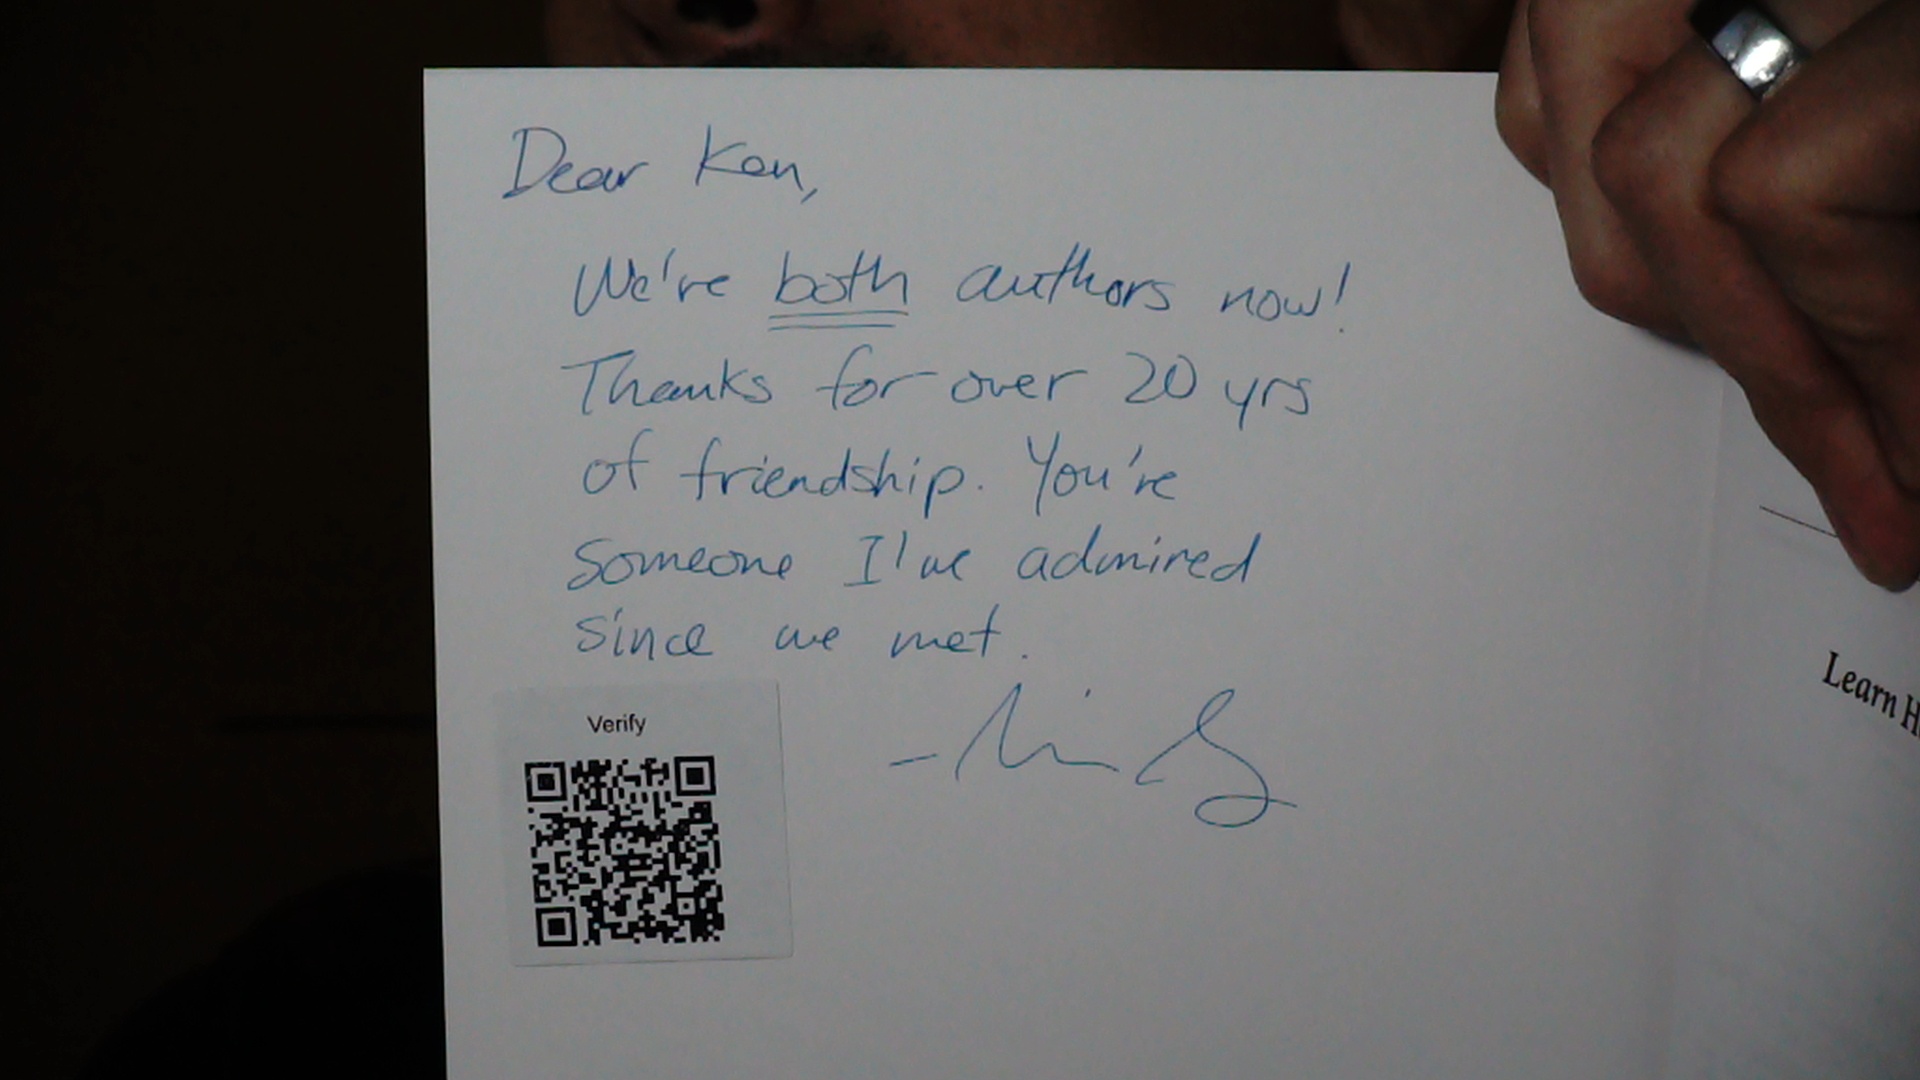 Dear Ken,
We're both authors now!
Thanks for over 20 yrs
of friendship. You're
someone I've admired
since we met.
Verify
Learn H